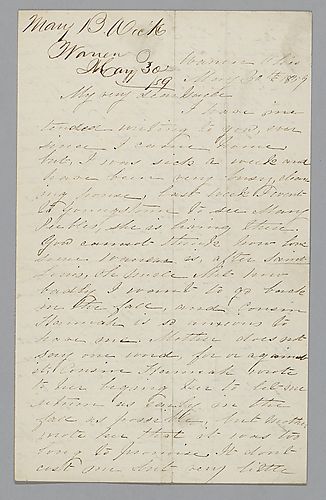 Mary B Wick
Warren O
May 30th
/59
Warren Ohio
May 30th 1859
My very dear
I have in
tended writing to you, ever
since I came home,
but, I was sick a week and
have been very busy, clean
ing house, last week I went
to Youngstown to see Mary
she is living there.
You cannot think how lone
some Warren is, after
Oh Uncle you
badly I want to go back
in the fall, and Cousin
Hannah is so anxious to
have me. Mother doesnt
say one word, for or against
it. Cousin Hannah wrote
to her beging her to let me
return as early in the
fall as possible, but Mother
wrote her that it was too
long to promise. It dont
cost me but very little